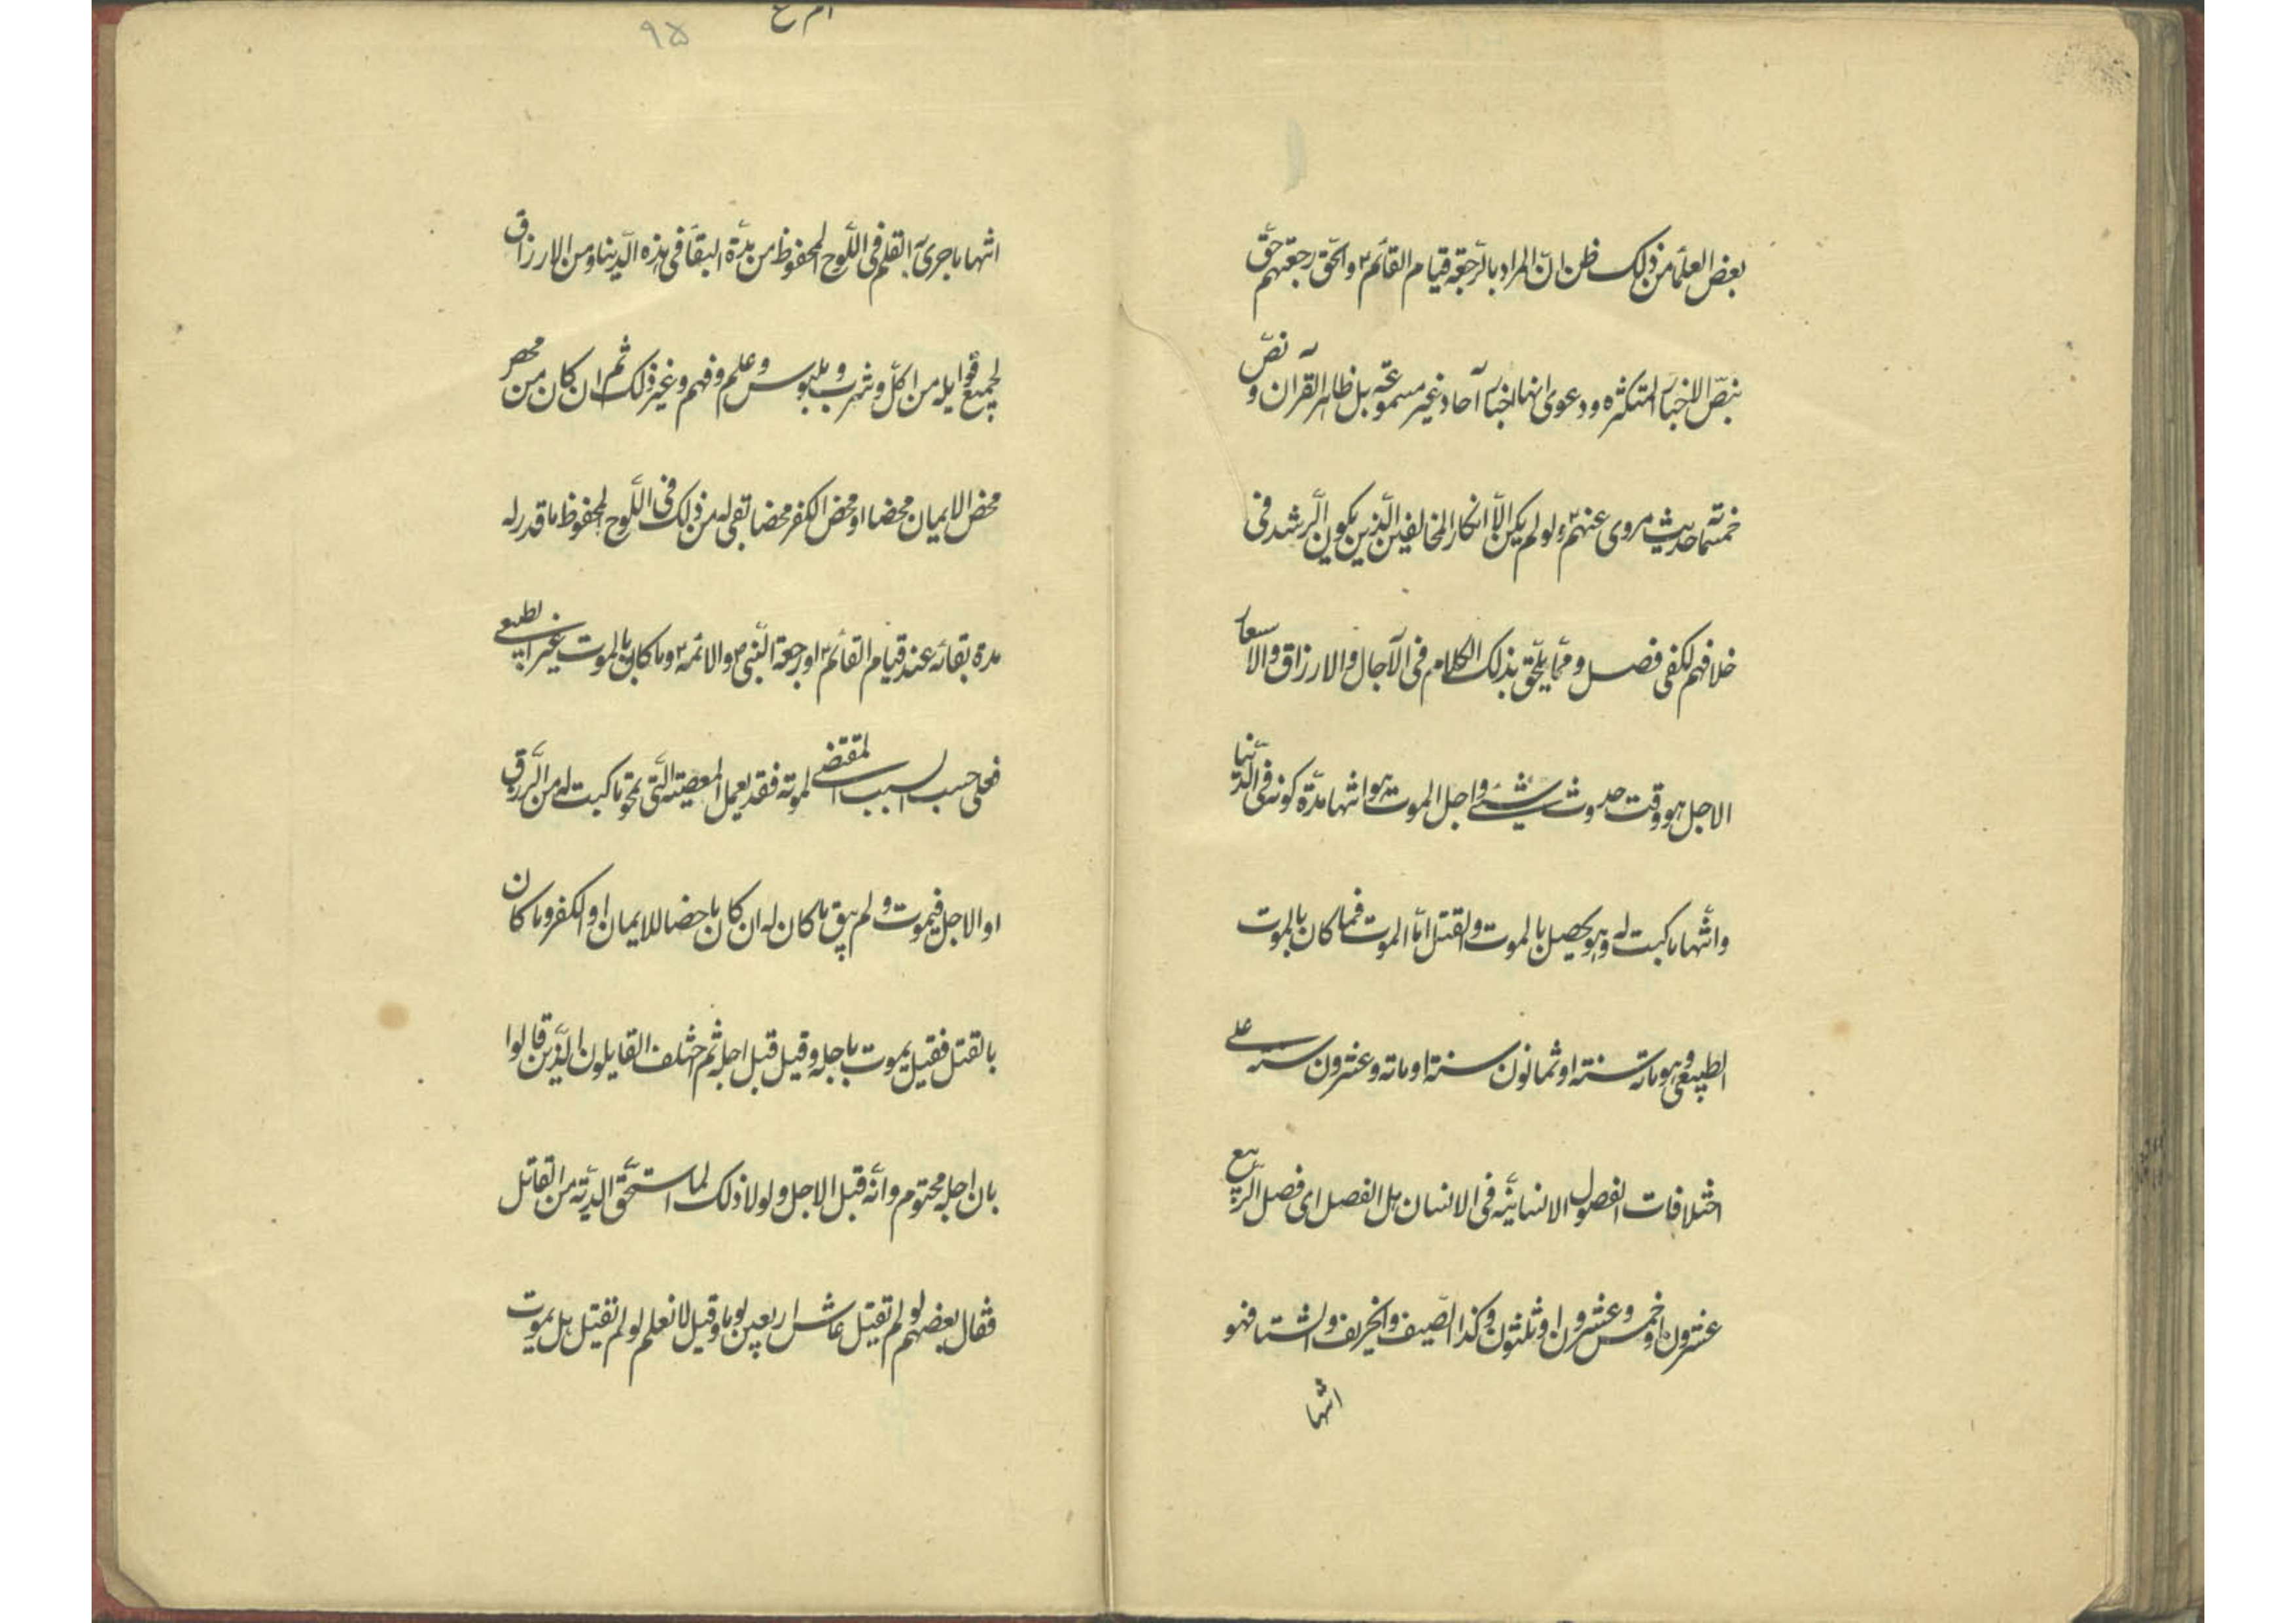 بعض العلمآء من ذلك ظن انّ المراد بالرّجعة قيام القآئم ع والحقّ رجعتهم حقّ
بنصّ الاخبار المتكثره ودعوى انها اخبار آحاد غير مسموعة بل ظاهر القرآن ونصّ
خمسمآئة حديث مروى عنهم ع ولو لم يكن الّا انكار المخالفين الّذين يكون الرّشد فى
خلافهم لكفى فصل وممّا يلحق بذلك الكلام فى الآجال والارزاق والاسعار
الاجل هو وقت حدوث شئ واجل الموت هو انتهآ مدّة كونه فى الدّنيا
وانتهآ ما كتبت له وهو يحصل بالموت والقتل امّا الموت فما كان بالموت
الطبيعى وهو مائة سنة او ثمانون سنة او مائة وعشرون سنة على
اختلافات الفصول الانسانيّة فى الانسان هل الفصل اى فصل الرّبيع
عشرون او خمس وعشرون او ثلثون وكذا الصّيف والخريف والشتا فهو
انتها
٩٥
انتهآ ما جرى به القلم فى اللّوح المحفوظ من مدّة البقآ فى هذه الدّنيا ومن الارزاق
لجميع قوابله من اكل وشرب وملبوس وعلم وفهم وغير ذلك ثم ان كان ممن
محض الايمان محضا او محض الكفر محضا بقى له من ذلك فى اللّوح المحفوظ ما قدر له
مدة بقائه عند قيام القآئم ع او رجعة النّبى ص والائمة ع وما كان بالموت غير الطبيعى
فعلى حسب السبب المقتضى لموته فقد يعمل المعصية الّتى تمحو ما كتبت له من الرّزق
او الاجل فيموت ولم يبق ما كان له ان كان ماحضا للايمان او الكفر وما كان
بالقتل فقيل يموت باجله وقيل قبل اجله ثم اختلف القايلون الّذين قالوا
بان اجله محتوم وانّه قبل الاجل ولولا ذلك لما استحقّ الديّة من القاتل
فقال بعضهم لو لم تقتل عاش اربعين يوما وقيل لا نعلم لو لم تقتل هل يموت